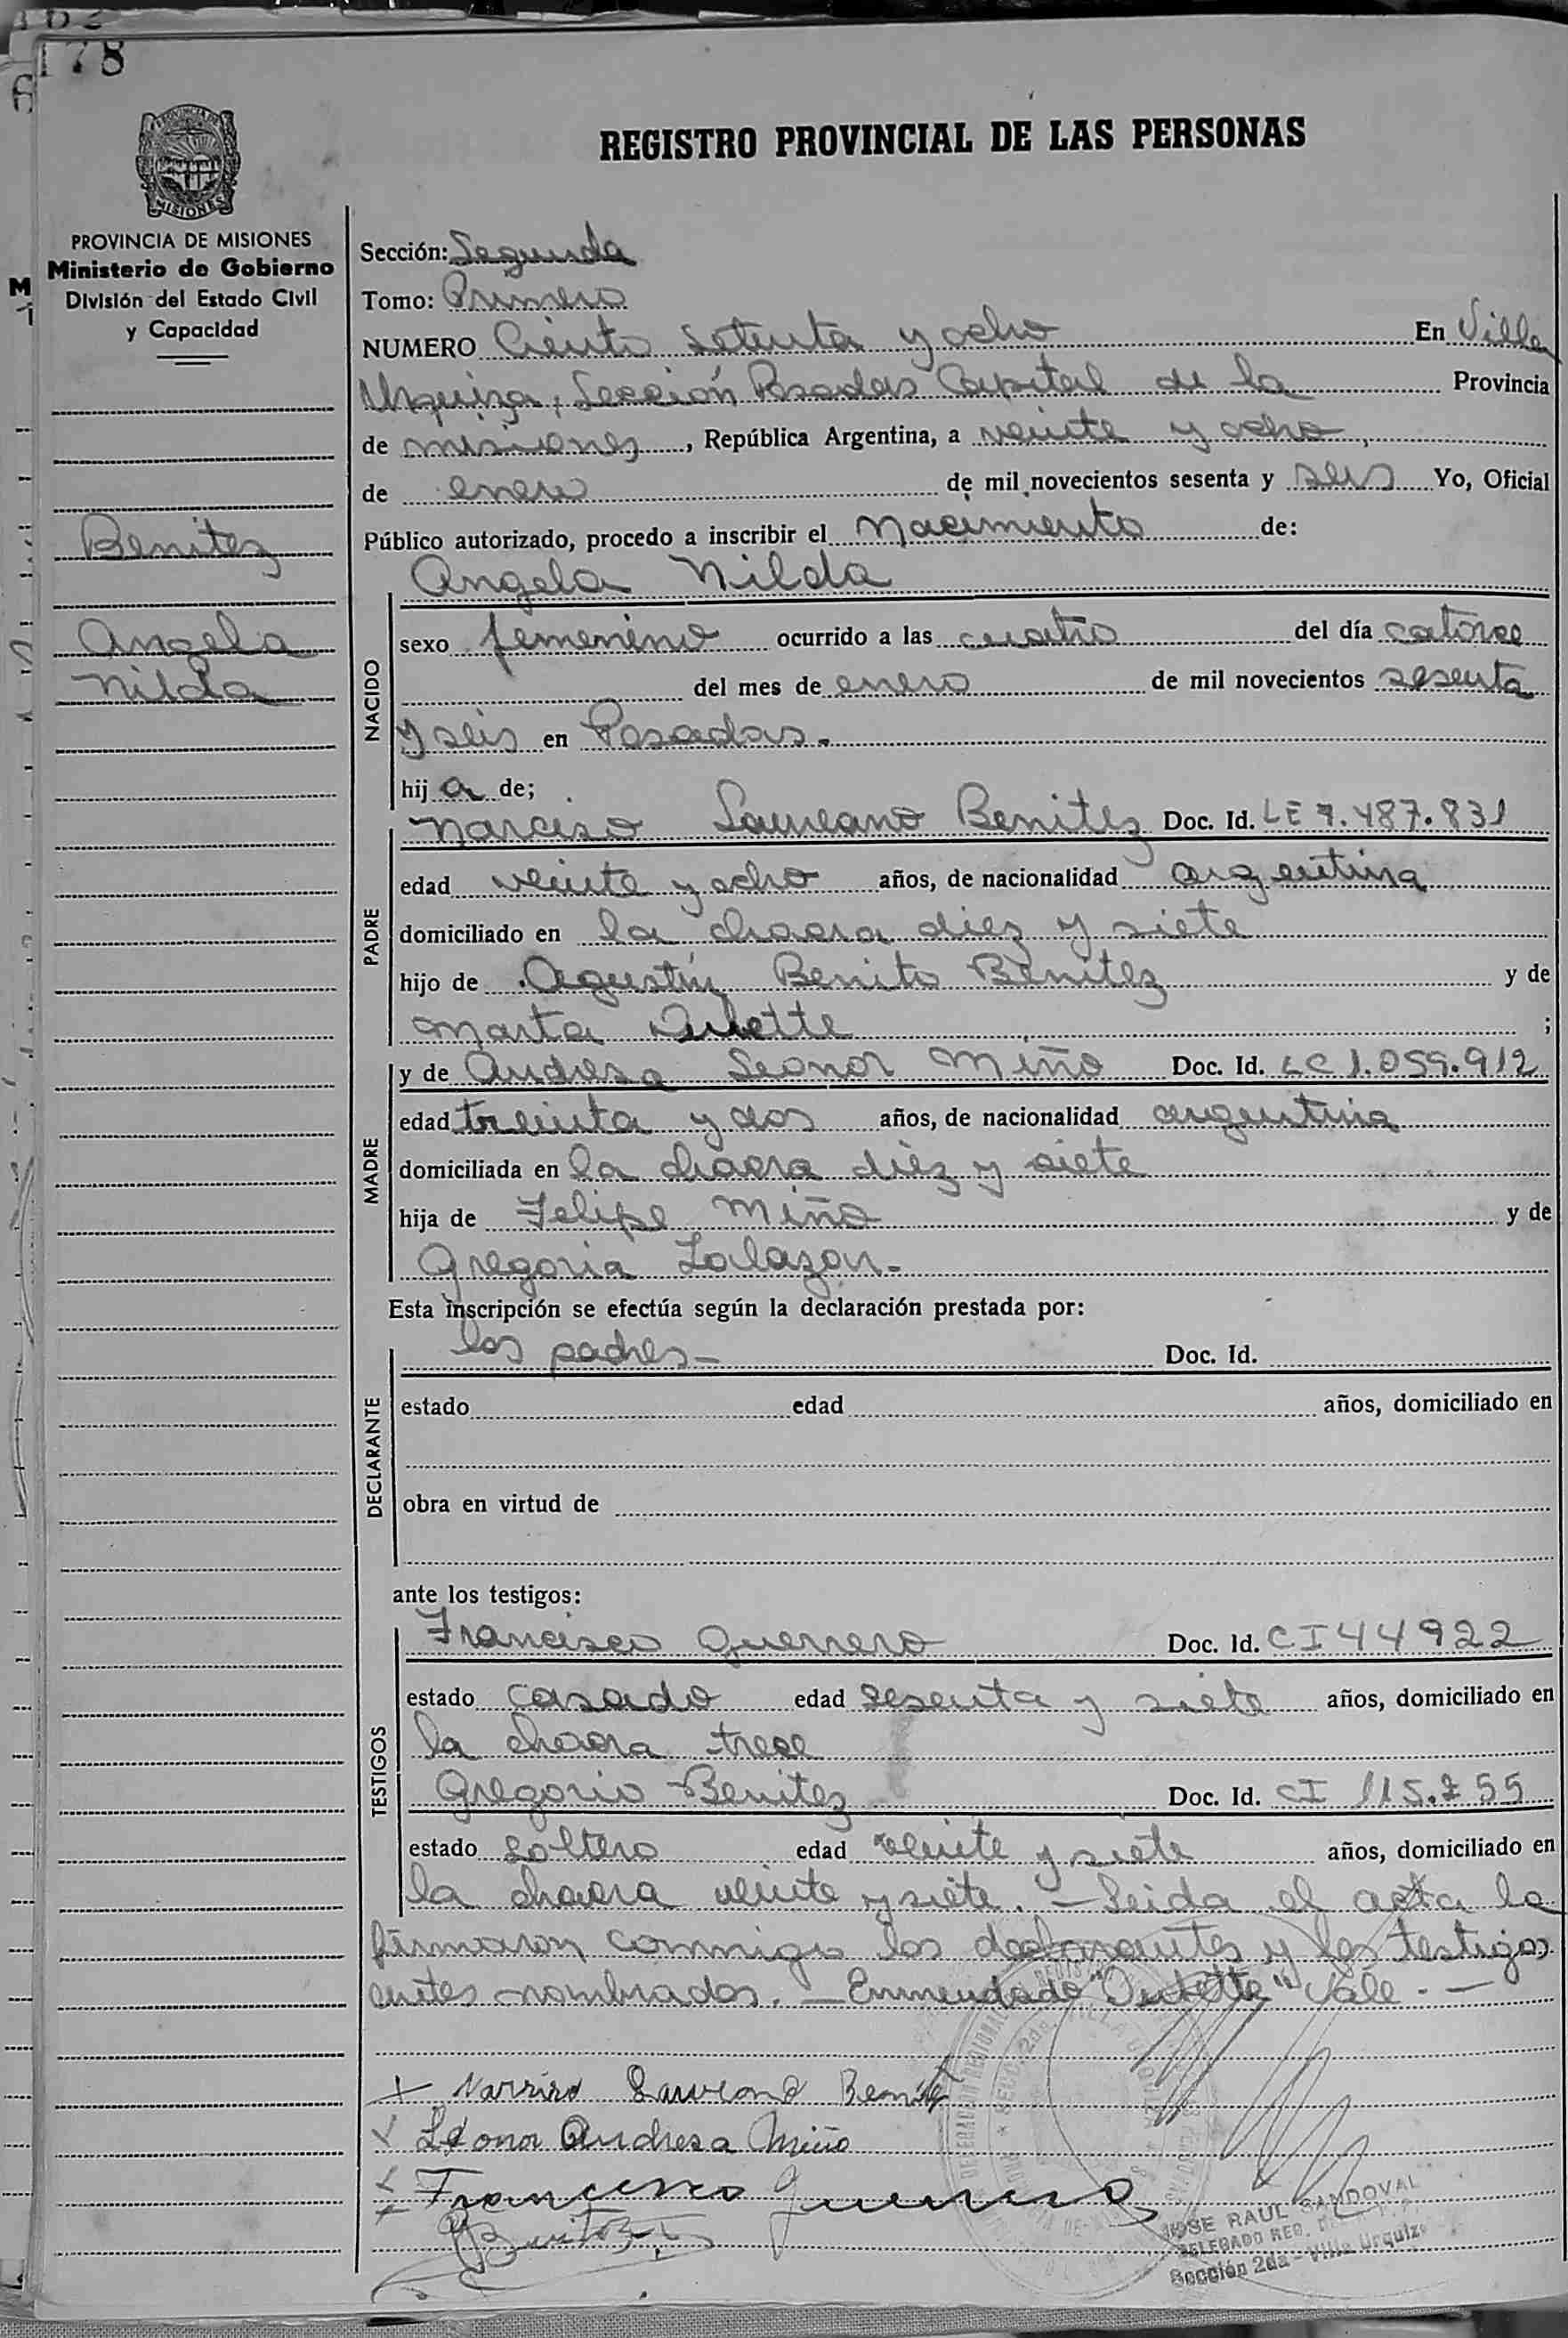 178
REGISTRO PROVINCIAL DE LAS PERSONAS
PROVINCIA DE
MISIONES
PROVINCIA DE MISIONES
Ministerio de Gobierno
División del Estado Civil
y Capacidad
Benitez
Angela
Nilda
Sección: Segunda
Tomo: Primero
NUMERO Ciento setenta y ocho En Villa
Urquiza, Sección Posadas Capital de la Provincia
de misiones, República Argentina, a veinte y ocho,
de enero de mil novecientos sesenta y seis Yo, Oficial
Público autorizado, procedo a inscribir el Nacimiento de:
NACIDO
Angela Nilda
sexo femenino ocurrido a las cuatro del día catorce
del mes de enero de mil novecientos sesenta
y seis en Posadas.
hij a de;
PADRE
Narciso Laureano Benitez Doc. Id. LE 7.487.831
edad veinte y ocho años, de nacionalidad argentina
domiciliado en la chacra diez y siete
hijo de Agustín Benito Benitez y de
Marta Duette ;
MADRE
y de Andresa Leonor Miño Doc. Id. LC 1.059.912
edad treinta y dos años, de nacionalidad argentina
domiciliada en la chacra diez y siete
hija de Felipe Miño y de
Gregoria Zalazar.-
Esta inscripción se efectúa según la declaración prestada por:
DECLARANTE
los padres- Doc. Id.
estado edad años, domiciliado en
obra en virtud de
ante los testigos:
TESTIGOS
Francisco Guerrero Doc. Id. CI 44922
estado casado edad sesenta y siete años, domiciliado en
la chacra trece
Gregorio Benitez Doc. Id. CI 115.255
estado soltero edad veinte y siete años, domiciliado en
la chacra veinte y siete. - Leida el acta la
firmaron conmigo los declarantes y los testigos
antes nombrados. - Enmendado "Duette" Vale. -
Narciso Laureano Benitez
Leonor Andresa Miño
Francisco Guerrero
JOSE RAUL SANDOVAL
DELEGADO REG.
Sección 2da - Villa Urquiza